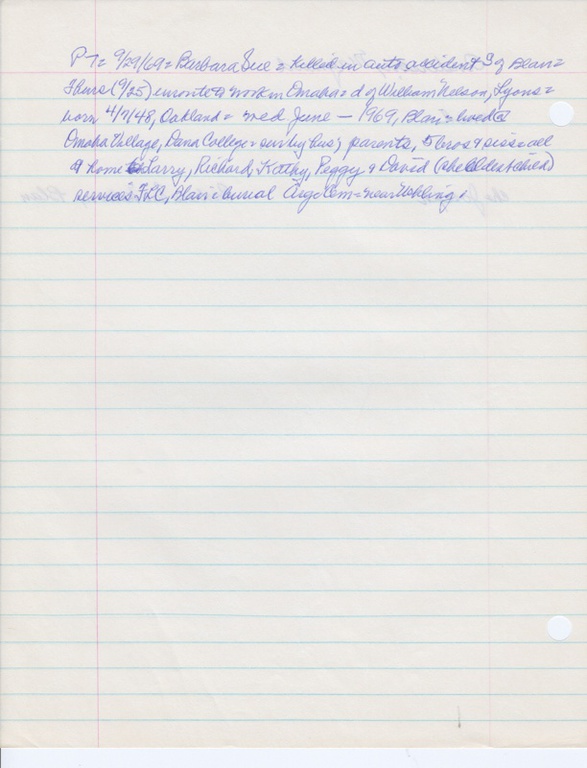 PT = 9/29/69 = Barbara Sue = killed in auto accident S of Blair =
Thurs (9/25) enroute to work in Omaha = d of William Nelson, Lyons =
born 4/7/48, Oakland = med June – 1969, Blair = lived @
Omaha Village, Dana College = surv by hus; parents, 5 bros & siss = all
@ home = Larry, Richard, Kathy, Peggy & David (she oldest child)
services FLC, Blair = burial Argo Cem = near Uehling.